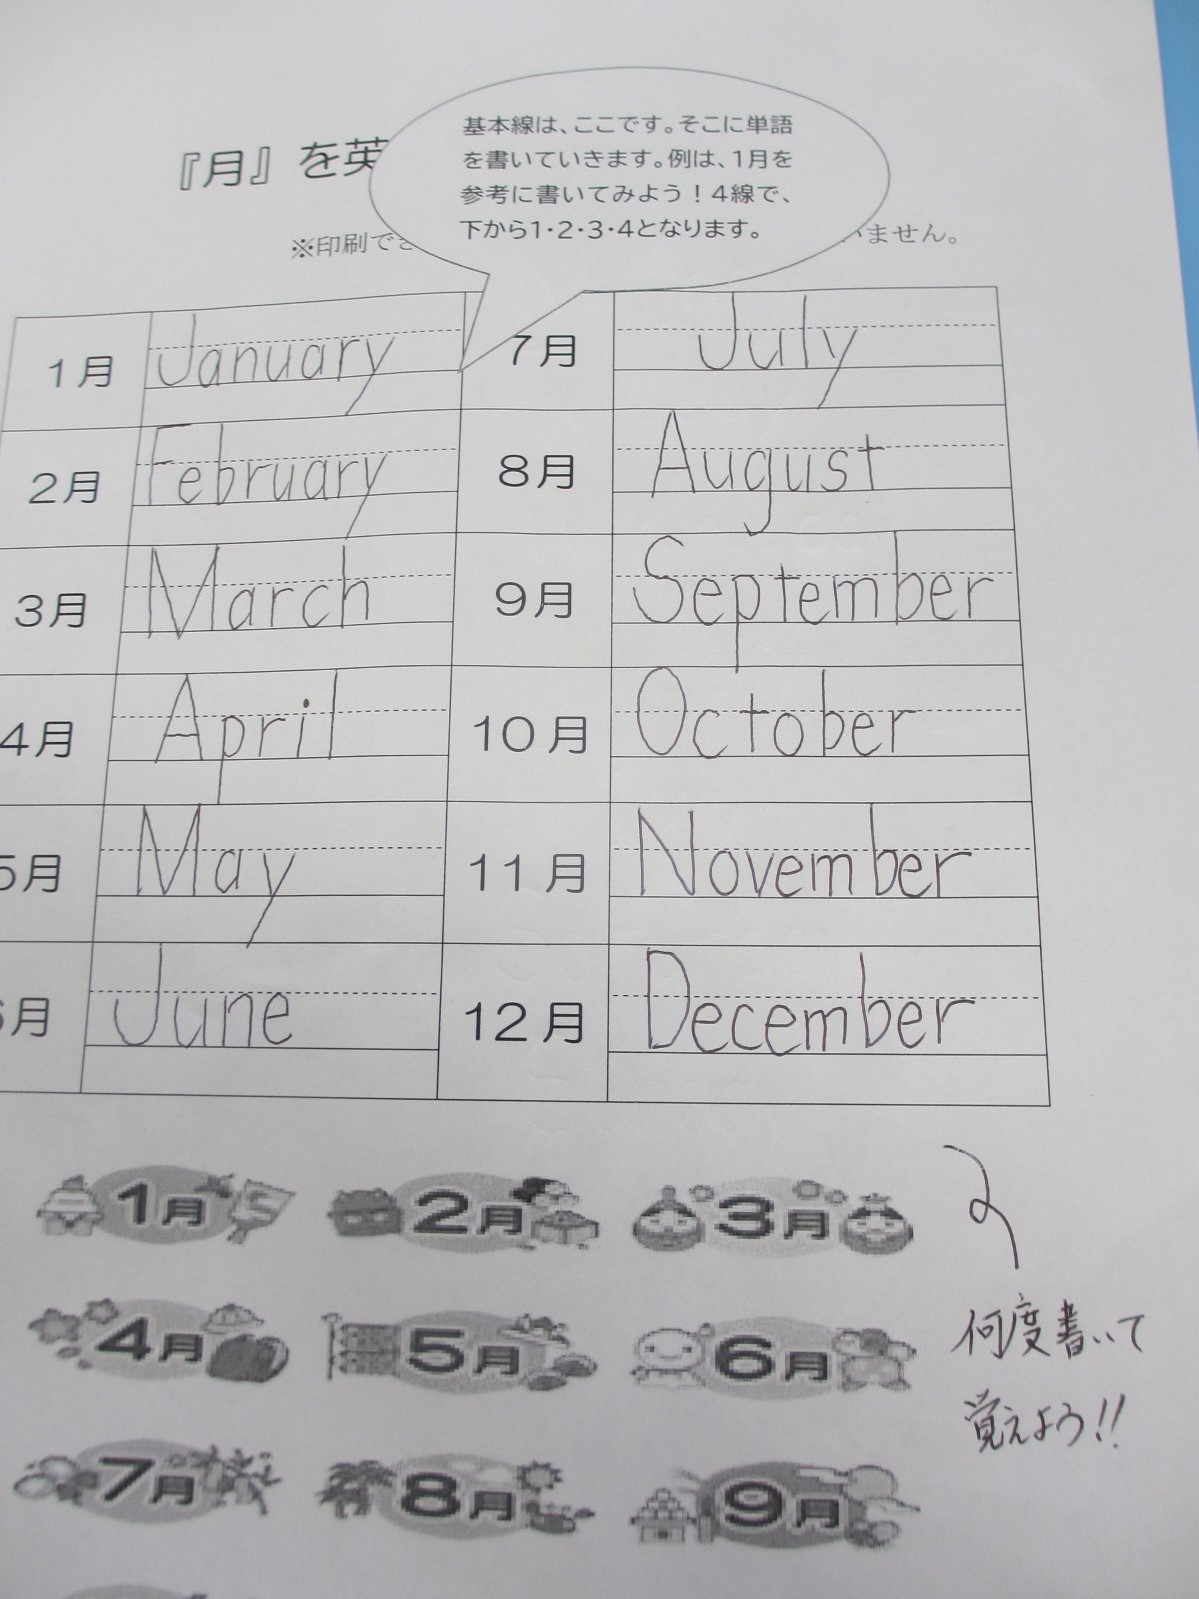 『月』を英
基本線は、ここです。そこに単語
を書いていきます。例は、1月を
参考に書いてみよう！4線で、
下から1・2・3・4となります。
※印刷でき
いません。
1月 January 7月 July
2月 February 8月 August
3月 March 9月 September
4月 April 10月 October
5月 May 11月 November
6月 June 12月 December
1月 2月 3月
4月 5月 6月
7月 8月 9月
何度書いて
覚えよう!!